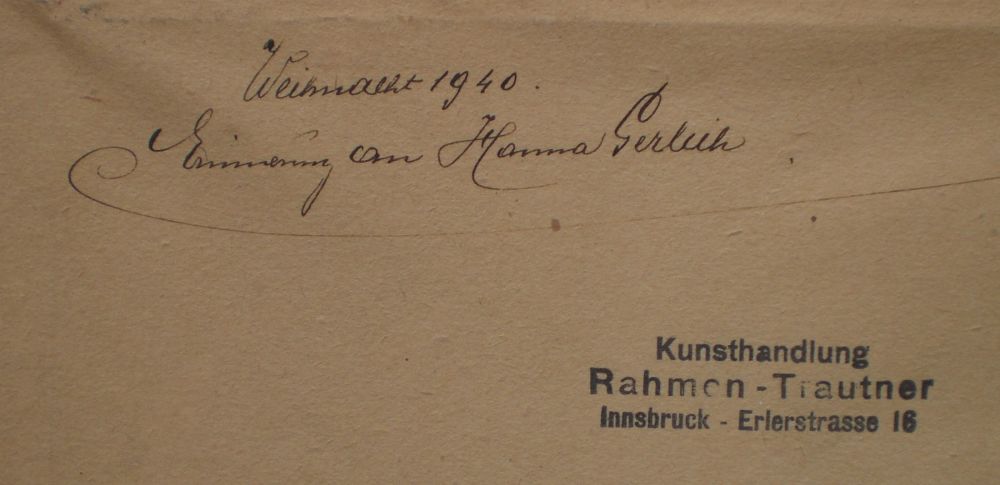 Weihnacht 1940.
Erinnerung an Hanna Gerlich
Kunsthandlung
Rahmen - Trautner
Innsbruck - Erlerstrasse 16